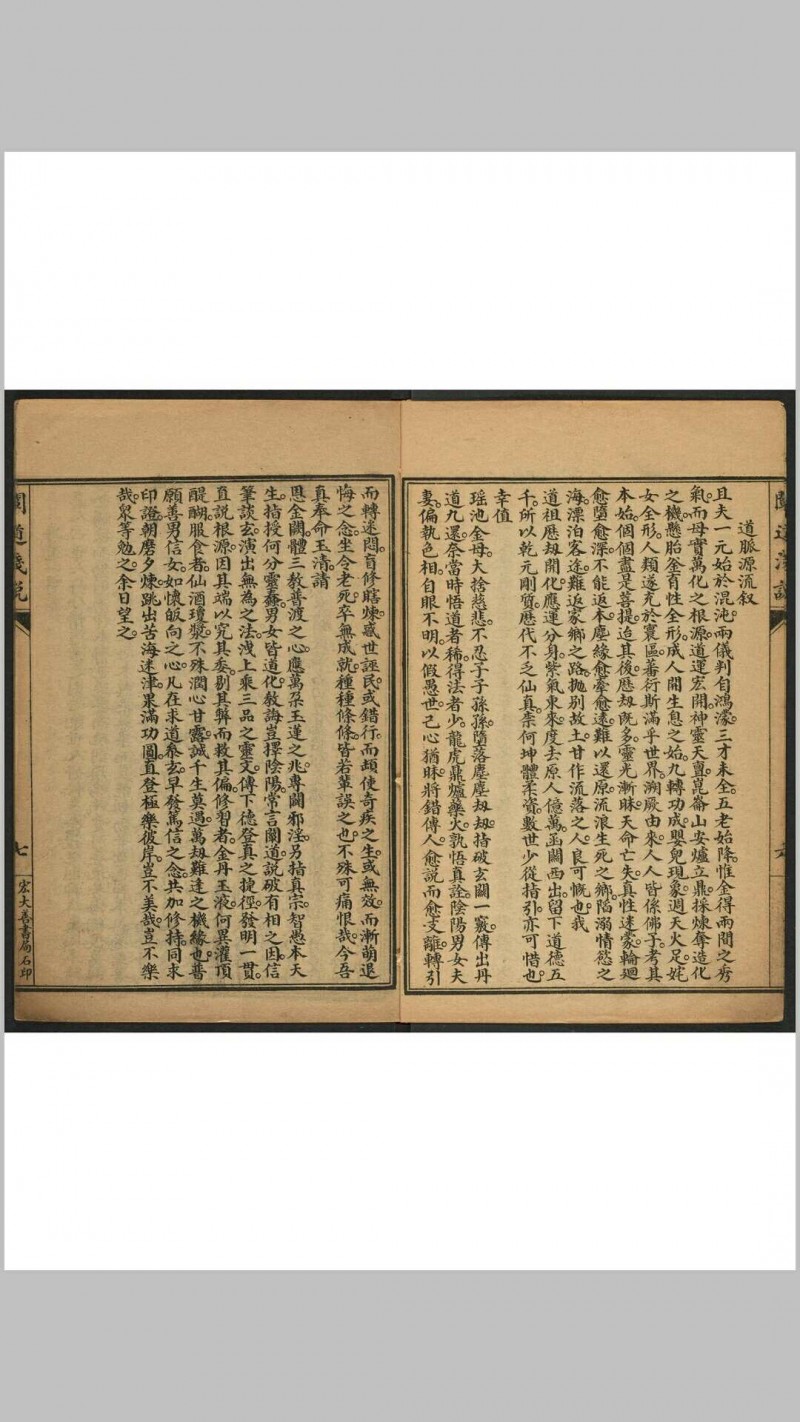 道脈源流叙
且夫一元始於混沌。兩儀判自鴻濛。三才未全。五老始降。惟金得兩間之秀
氣。而母實萬化之根源。道運宏開。神靈天賣。崑崙山安爐立鼎。採煉奪造化
之機。懸胎釜有性全形。成人開生息之始。九轉功成。嬰兒現象。週天火足。姹
女全形。人類遂充於寰區。蕃衍斯滿乎世界。溯厥由來。人人皆係佛子。考其
本始。個個盡是菩提。迨其後應刼既多。靈光漸昧。天命亡失。真性迷蒙。輪廻
愈墮愈深。不能返本。塵緣愈牽愈遠。難以還原。流浪生死之鄉。陷溺情慾之
海。漂泊客途。難返家鄉之路。拋别故土。甘作流落之人。良可慨也。我
道祖應刼開化。應運分身。紫氣東來。度去原人億萬。函關西出。留下道德五
千。所以乾元剛質。歷代不乏仙真。柰何坤體柔資。數世少從指引。亦可惜也。
幸值
瑶池金母。大捨慈悲。不忍子子孫孫。墮落塵塵刼刼。指破玄關一竅。傳出丹
道九還。奈當時悟道者稀。得法者少。龍虎鼎爐藥火。孰悟真詮。陰陽男女夫
妻。偏執色相。自眼不明。以假愚世。己心猶昧。將錯傳人。愈說而愈支離。轉引
而轉迷悶。盲修瞎煉。惑世誣民。或錯行而頓使奇疾之生。或無效而漸萌退
悔之念。坐令老死。卒無成就。種種條條。皆若輩誤之也。不殊可痛恨哉。今吾
真奉命玉清。請
恩金闕。體三教普渡之心。應萬朶玉蓮之兆。專闢邪淫。另指真宗。智愚本天
生。指授何分靈蠢。男女皆道化。教誨豈擇陰陽。常言闡道。説破有相之因。信
筆談玄。演出無為之法。浅上乘三品之靈文。傳下德登真之捷徑。發明一貫。
直説根源。因其端以究其委。剔其弊而救其偏。修習者。金丹玉液。何異灌頂
醍醐。服食者。仙酒瓊漿。不殊潤心甘露。誠千生莫遇。萬刼難逢之機緣也。普
願善男信女。如懷皈向之心。凡在求道參玄。早發篤信之念。共加修持。同求
印證。朝磨夕煉。跳出苦海迷津。果滿功圓。直登極樂彼岸。豈不美哉。豈不樂
哉。衆等勉之。余日望之。
七
宏大善書局石印